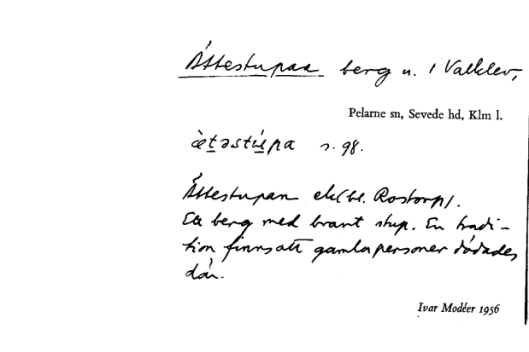 Ättestupan berg n. i Valklev,
Pelarne sn, Sevede hd, Klm l.
s. 98.
Ättestupan ek(bl. Rostorp).
Ett berg med brant stup. En tradi-
tion finns att gamla personer dödades
där.
Ivar Modéer 1956